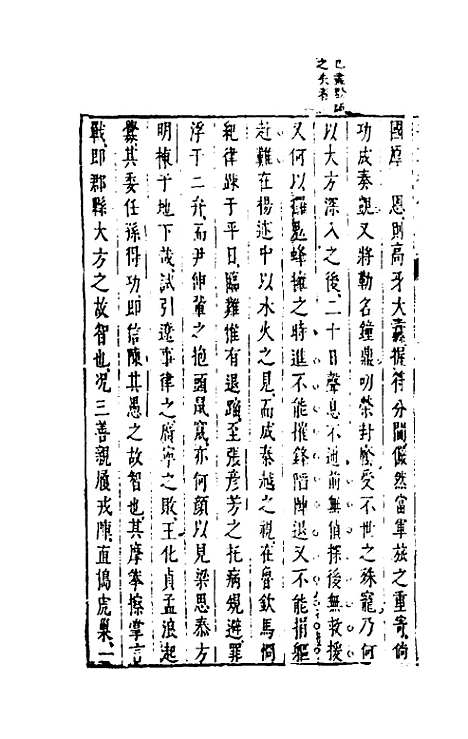 已盡黔師
之失矣
國厚　恩則高牙大纛握符分閫儼然當軍旅之重寄倘
功成奏凱又將勒名鐘鼎叨榮封廕受不世之殊寵乃何
以大方深入之後二十日聲息不通前無偵探後無救援
又何以羅鬼蜂擁之時進不能摧鋒陷陣退又不能捐軀
赴難在楊述中以水火之見而成秦越之視在魯欽馬烱
紀律疎于平日臨難惟有退踰至張彥芳之托病規避罪
浮于二弁而尹伸輩之抱頭鼠竄亦何顏以見梁思泰方
明棟于地下哉試引遼事律之廣寧之敗王化貞孟浪起
釁其委任孫得功即信陳其愚之故智也其摩拳擦掌言
戰即郡縣大方之故智也况三善親履戎陳直搗虎巢一